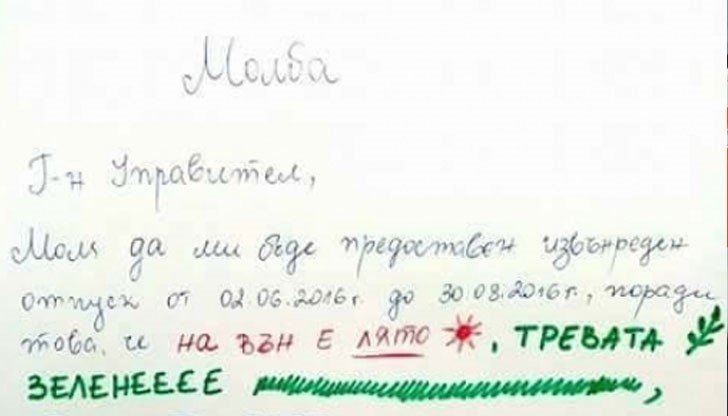 Молба
Г-н Управител,
Моля да ми бъде предоставен извънреден
отпуск от 02.06.2016г. до 30.08.2016г., поради
това, че на вън е лято, ТРЕВАТА
ЗЕЛЕНЕЕЕЕ ,